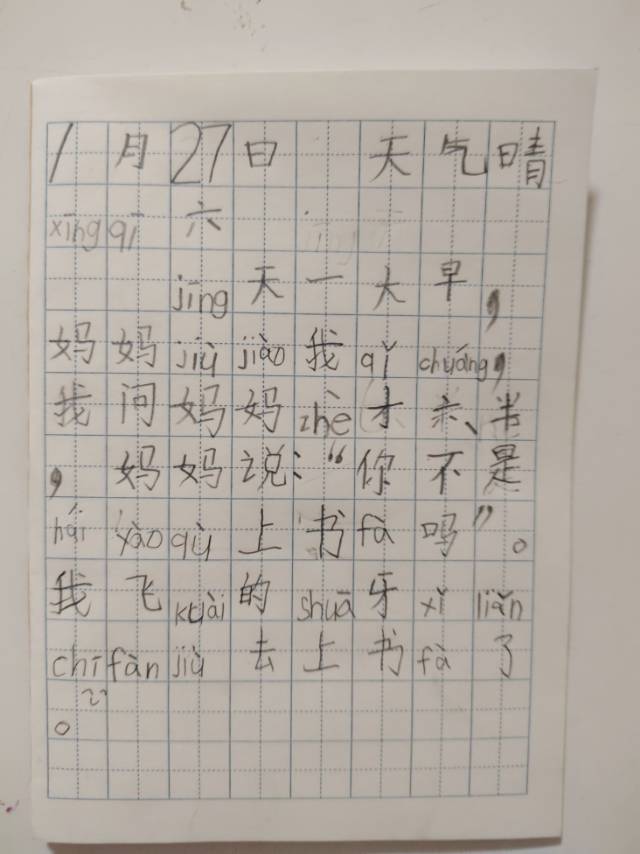 1月27日 天气晴
xīng qī 六
jīng 天一大早，
妈妈 jiù jiào 我 qǐ chuáng，
我问妈妈 zhè 才六、半
，妈妈说：“你不是
hái yào qù 上书 fà 吗”。
我飞 kuài 的 shuā 牙 xǐ liǎn
chī fàn jiù 去上书 fà 了
。